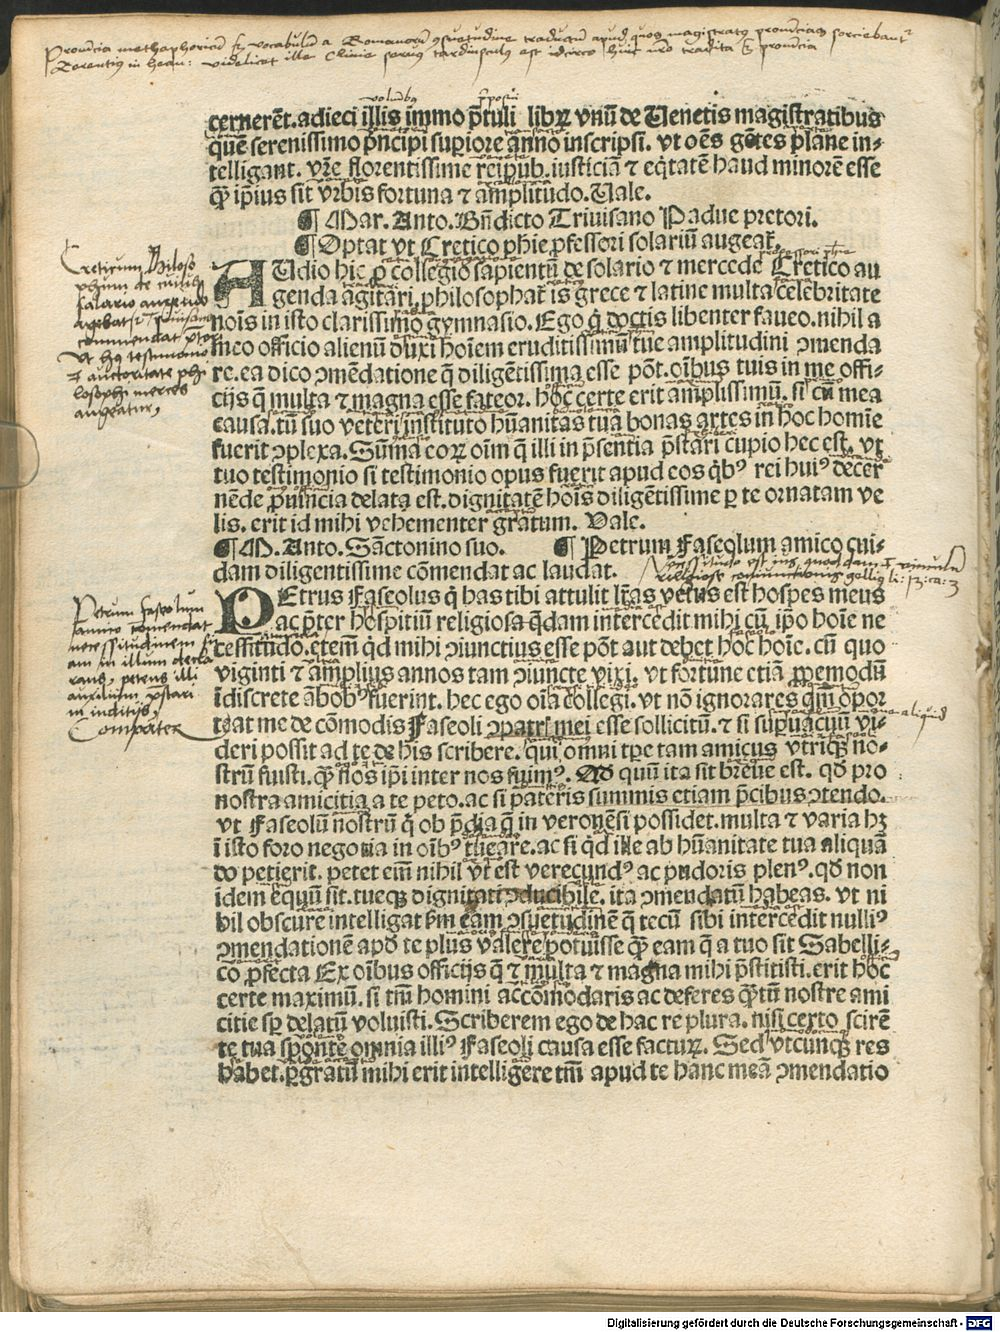 Prouincia methaphoricum est vocabulum a Romanorum consuetudine traductum apud quos magistratus prouincias sorciebantur
Terentius in heau: videlicet ille Clinie seruus tardiusculus est idcirco huic nostro tradita est prouincia
cernerēt. adieci illis immo p̄tuli libꝝ vnū de Uenetis magistratibus
quē serenissimo p̄ncipi supiore anno inscripsi. vt oēs gētes plane in-
telligant. vr̄e florentissime reipub. iusticiā ⁊ eq̄tatē haud minorē esse
q̄ ip̄ius sit vrbis fortuna ⁊ amplitudo. Uale.
¶ Mar. Anto. Bn̄dicto Triuisano Padue pretori.
¶ Optat vt Cretico phie ꝓfessori solariū augeat̄.
AUdio hic ꝓ collegio sapientū de solario ⁊ mercede Cretico au
genda agitari. philosophat̄ is grece ⁊ latine multa celebritate
noīs in isto clarissimo gymnasio. Ego q̄ doctis libenter faueo. nihil a
meo officio alienū duxi hoīem eruditissimū tue amplitudini ɔmenda
re. ea dico ɔmēdatione q̄ diligētissima esse pōt. oībus tuis in me offi-
cijs q̄ multa ⁊ magna esse fateor. hōc certe erit amplissimū. si cū mea
causa. tū suo veteri instituto hūanitas tua bonas artes in hoc homīe
fuerit ɔplexa. Sūma eoꝝ oīm q̄ illi in p̄sentia p̄stari cupio hec est. vt
tuo testimonio si testimonio opus fuerit apud eos qͥbꝰ rei huiꝰ decer
nēde ꝓuincia delata est. dignitatē hoīs diligētissime ꝑ te ornatam ve
lis. erit id mihi vehementer gratum. Vale.
¶ M. Anto. Sāctonino suo. ¶ Petrum Faseolum amico cui-
dam diligentissime cōmendat ac laudat.
PEtrus Faseolus q̄ has tibi attulit lr̄as vetus est hospes meus
ac p̄ter hospitiū religiosa q̄dam intercedit mihi cū ip̄o hoīe ne
cessitudo. etem̄ qͥd mihi ɔiunctius esse pōt aut debet hoc hoīe. cū quo
viginti ⁊ amplius annos tam ɔiuncte vixi. vt fortune etiā ꝓpemodū
īdiscrete ābobꝰ fuerint. hec ego oīa collegi. vt nō ignorares q̄m opor
teat me de cōmodis Faseoli ɔpatris mei esse sollicitū. ⁊ si supuacuū vi-
deri possit ad te de his scribere. qui omni tp̄e tam amicus vtriqꝫ no-
strū fuisti. q̄ nos ip̄i inter nos fuimꝰ. Ad quū ita sit breue est. qd̄ pro
nostra amicitia a te peto. ac si pateris summis etiam p̄cibus ɔtendo.
vt Faseolū nostrū q̄ ob p̄dia q̄ in veronēsi possidet. multa ⁊ varia hꝫ
ī isto foro negotia in oībꝰ tueare. ac si qͥd ille ab hūanitate tua aliquā
do petierit. petet em̄ nihil vt est verecundꝰ ac pudoris plenꝰ. qd̄ non
idem equū sit. tueqꝫ dignitati ɔducibile. ita ɔmendatū habeas. vt ni
hil obscure intelligat hm̄ eam ɔsuetudinē q̄ tecū sibi intercedit nulliꝰ
ɔmendationē apd̄ te plus valere potuisse q̄ eam q̄ a tuo sit Sabelli-
co ꝓfecta Ex oībus officijs q̄ ⁊ multa ⁊ magna mihi p̄stitisti. erit hoc
certe maximū. si tm̄ homini accōmodaris ac deferes q̄tū nostre ami
citie sp̄ delatū voluisti. Scriberem ego de hac re plura. nisi certo scirē
te tua sponte omnia illiꝰ Faseoli causa esse facturꝝ. Sed vtcunqꝫ res
habet. ꝑgratū mihi erit intelligere tm̄ apud te hanc meā ɔmendatio
Creticum Philoso
phum de cuius
salario augendo
agebatur Triuisano
commendat pretori
vt hꝰ testimonio
⁊ auctoritate phi
losophi merces
augeatur,
Petrum faseolum
amico comendat
necessitudinem su
am in illum decla
rans, petens illi
auxilium prestari
in iudicijs,
Compater
aliquid
Digitalisierung gefördert durch die Deutsche Forschungsgemeinschaft - DFG